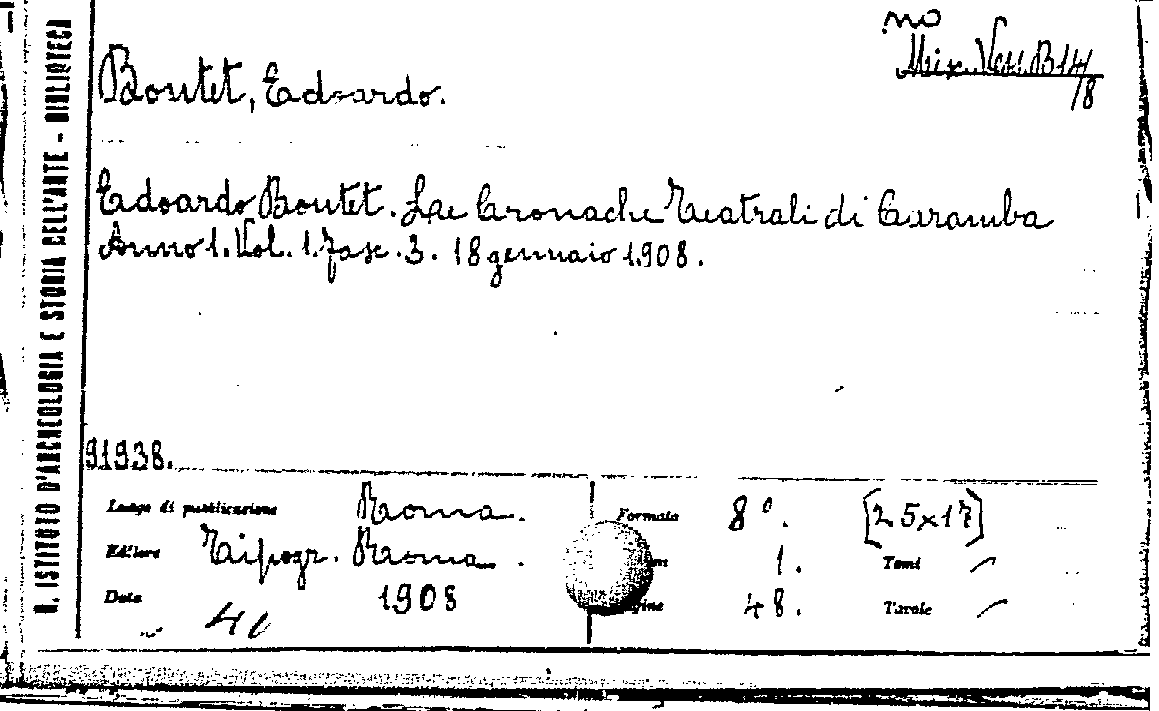 R. ISTITUTO D'ARCHEOLOGIA E STORIA DELL'ARTE - BIBLIOTECA
no
Mix. Vess. B14/8
Boutet, Edoardo.
Edoardo Boutet. Le Cronache Teatrali di Caramba
Anno 1. Vol. 1. fasc. 3. 18 gennaio 1908.
91938.
Luogo di pubblicazione Roma. Formato 8°. [25x17]
Editore Tipogr. Roma. 1. Tomi –
Data 1908 48. Tavole –